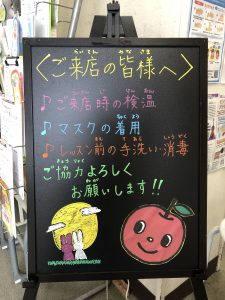 〈ご来店の皆様へ〉
♪ご来店時の検温
♪マスクの着用
♪レッスン前の手洗い・消毒
ご協力よろしく
お願いします!!